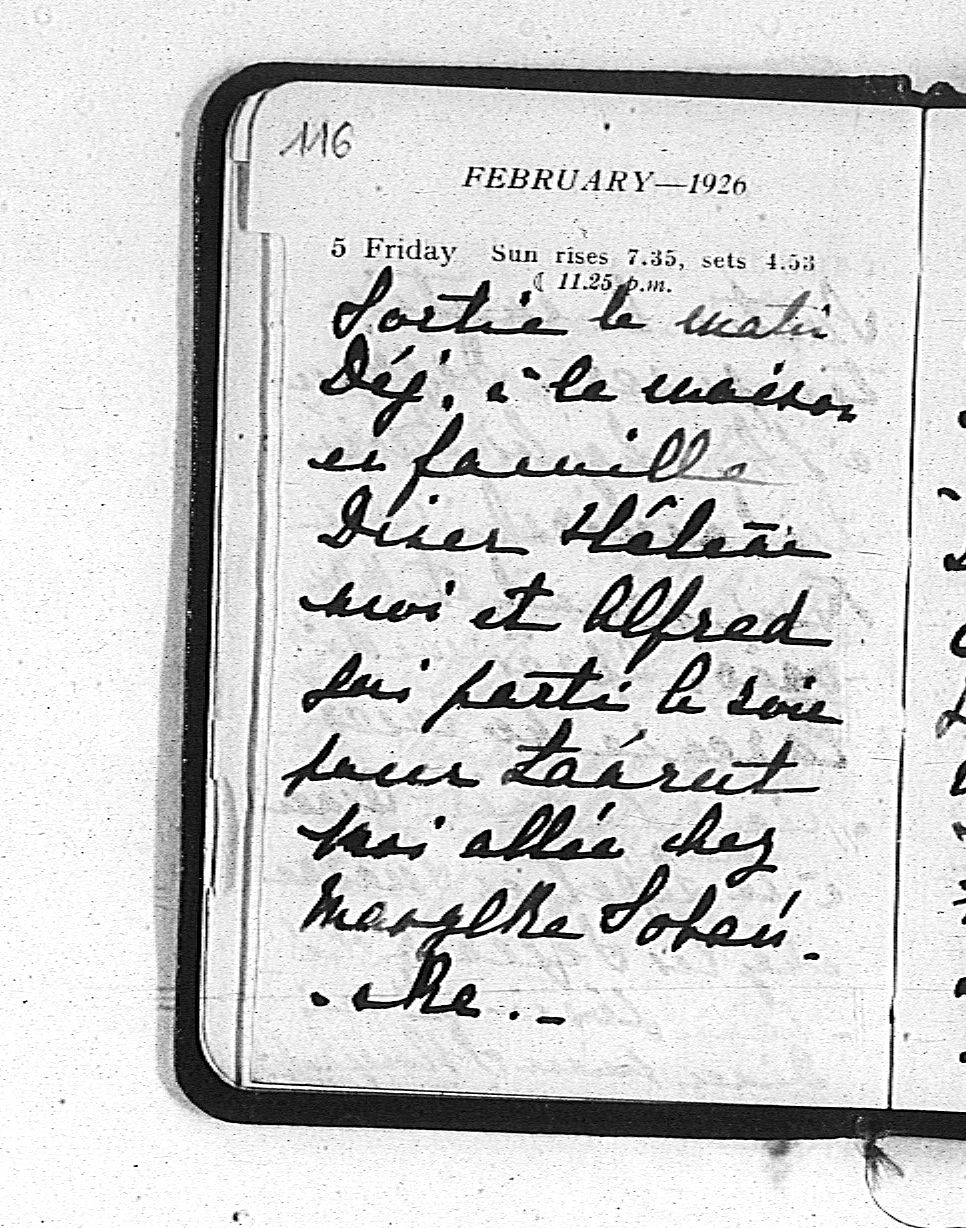 116
FEBRUARY—1926
5 Friday Sun rises 7.35, sets 4.53
☾ 11.25 p.m.
Sortie le matin
Déj. à la maison
en famille
Diner Hélène
moi et Alfred
lui parti le soir
pour
moi allée chez
- che . –